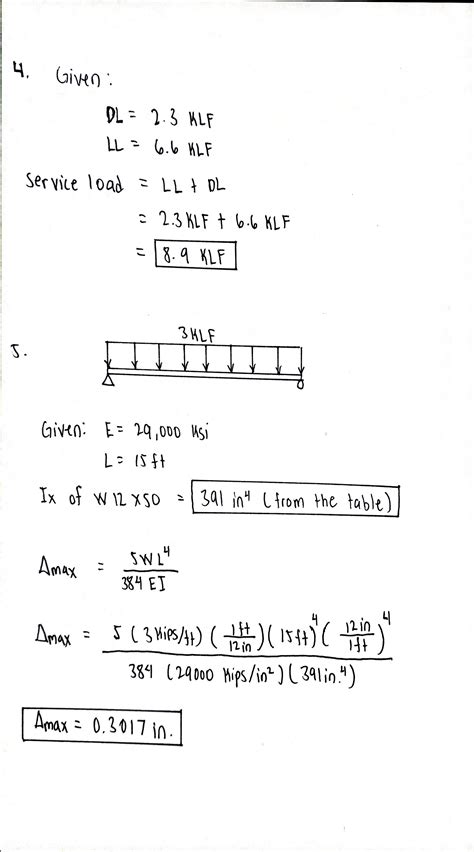 4. Given:
DL = 2.3 KLF
LL = 6.6 KLF
Service load = LL + DL
= 2.3 KLF + 6.6 KLF
= 8.9 KLF
5.
3 KLF
Given: E = 29,000 Ksi
L = 15 ft
Ix of W12 x 50 = 391 in⁴ (from the table)
Δmax = 5WL⁴ / 384 EI
Δmax = 5 (3 Kips/ft) (1ft / 12in) (15 ft)⁴ (12 in / 1ft)⁴ / 384 (29000 Kips/in²) (391 in.⁴)
Δmax = 0.3017 in.